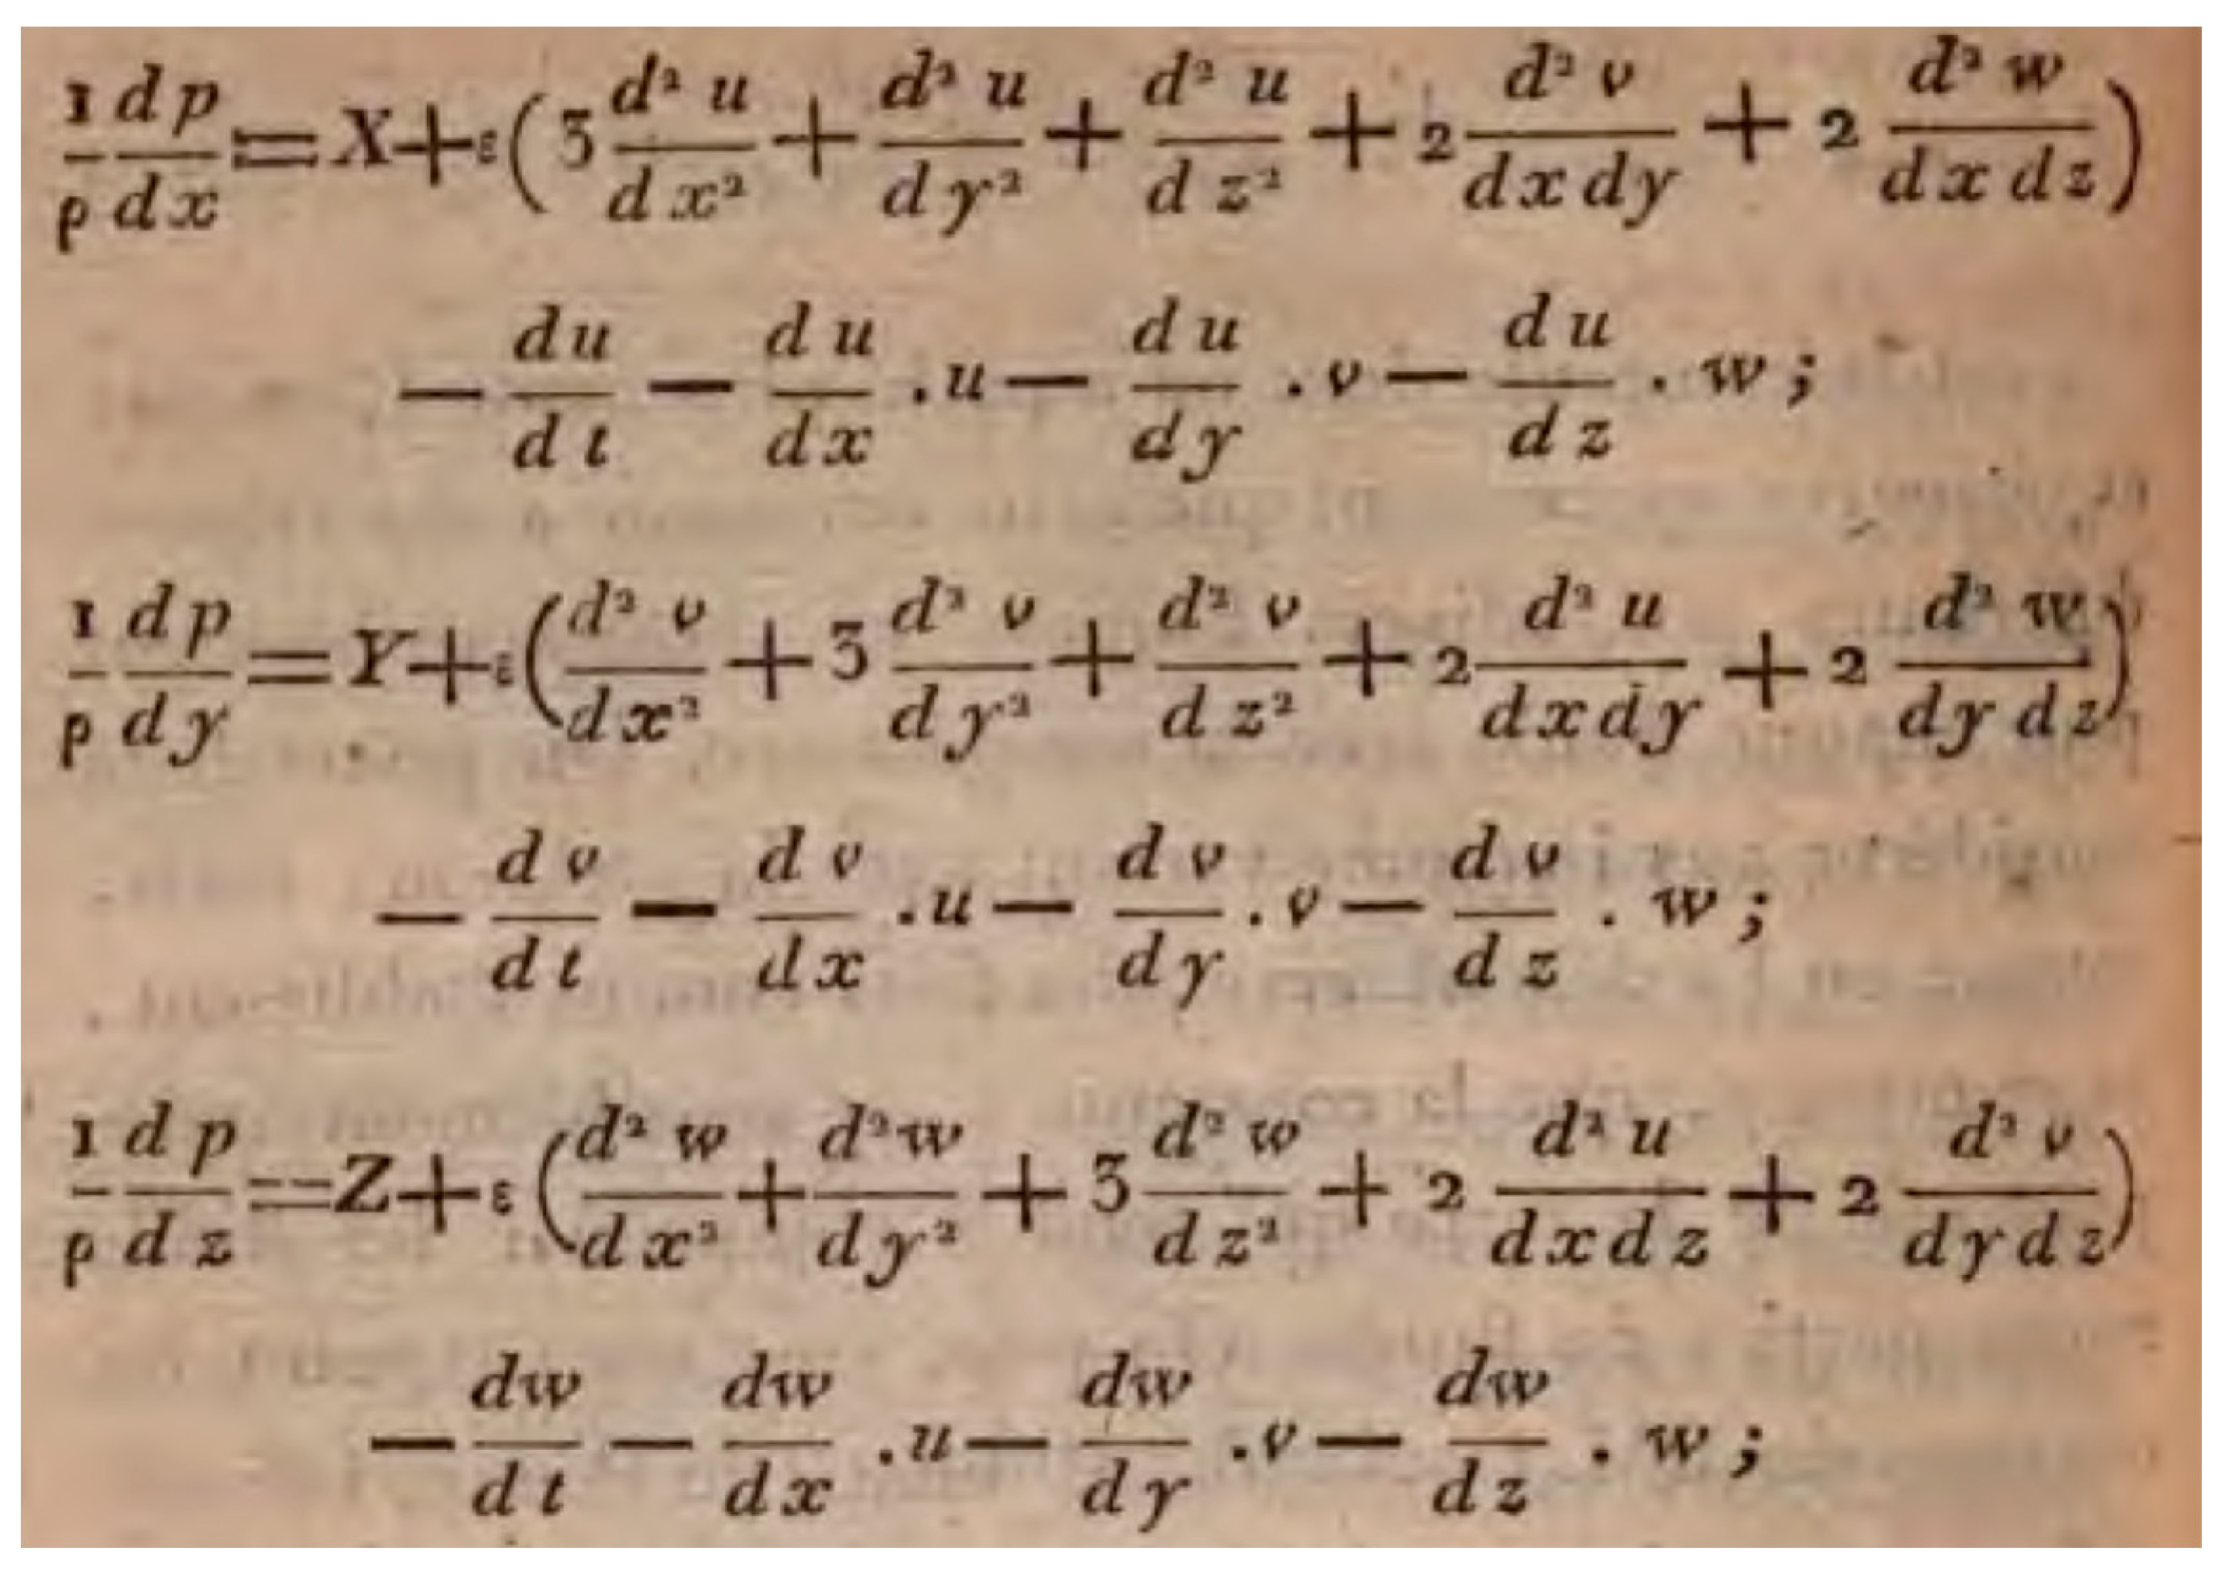 $\frac{1}{\rho}\frac{dp}{dx}=X+\varepsilon\left(3\frac{d^2u}{dx^2}+\frac{d^2u}{dy^2}+\frac{d^2u}{dz^2}+2\frac{d^2v}{dxdy}+2\frac{d^2w}{dxdz}\right)$
$-\frac{du}{dt}-\frac{du}{dx}.u-\frac{du}{dy}.v-\frac{du}{dz}.w;$
$\frac{1}{\rho}\frac{dp}{dy}=Y+\varepsilon\left(\frac{d^2v}{dx^2}+3\frac{d^2v}{dy^2}+\frac{d^2v}{dz^2}+2\frac{d^2u}{dxdy}+2\frac{d^2w}{dydz}\right)$
$-\frac{dv}{dt}-\frac{dv}{dx}.u-\frac{dv}{dy}.v-\frac{dv}{dz}.w;$
$\frac{1}{\rho}\frac{dp}{dz}=Z+\varepsilon\left(\frac{d^2w}{dx^2}+\frac{d^2w}{dy^2}+3\frac{d^2w}{dz^2}+2\frac{d^2u}{dxdz}+2\frac{d^2v}{dydz}\right)$
$-\frac{dw}{dt}-\frac{dw}{dx}.u-\frac{dw}{dy}.v-\frac{dw}{dz}.w;$